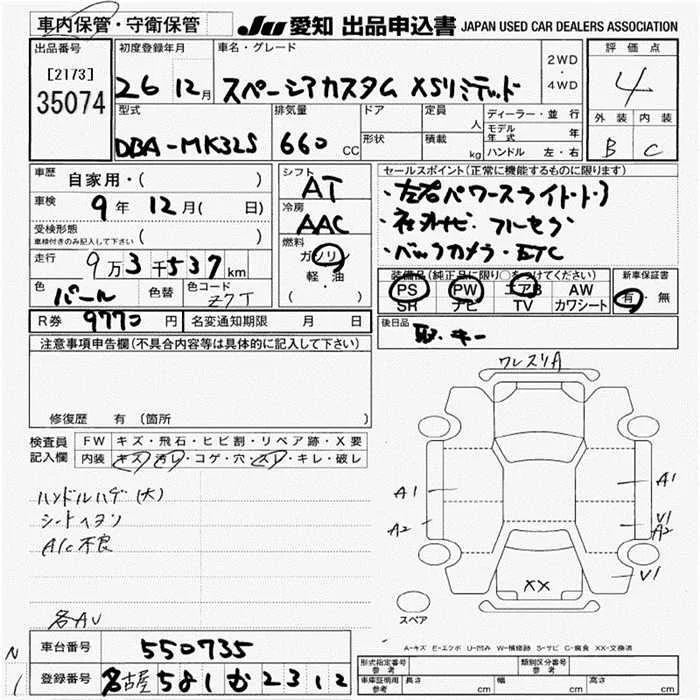 車内保管・守衛保管 JU 愛知 出品申込書 JAPAN USED CAR DEALERS ASSOCIATION
出品番号 初度登録年月 車名・グレード 2WD・4WD 評価点
[2173] 35074 26 12月 スペーシアカスタム XSリミテッド 4
型式 排気量 ドア 定員 人 ディーラー・並行 外装 内装
DBA-MK32S 660 CC 形状 積載 kg モデル年式 年 B C
ハンドル 左・右
車歴 自家用・( ) シフト AT セールスポイント(正常に機能するものに限ります)
車検 9年 12月( 日) 冷房 AAC ・左右パワースライドドア
受検形態 ( ) ・社外ナビ フルセグ
車検付きのみ記入して下さい 燃料 ガソリン ・バックカメラ・ETC
走行 9万3千537km 軽・油
色 パール 色替 色コード Z7T (・ )
装備品(純正品に限り○をつけてください) 新車保証書
PS PW エアB AW 有・無
SR ナビ TV カワシート
R券 9770円 名変通知期限 月 日 後日品 取・キー
注意事項申告欄(不具合内容等は具体的に記入して下さい)
修復歴 有 (箇所
検査員記入欄 FW キズ・飛石・ヒビ割・リペア跡・X要
内装 キズ・汚レ・コゲ・穴・スレ・キレ・破レ
ハンドルハゲ(大)
シートヘタリ
A/C不良
名AU
ワレスリA
A1 A1
A2 V1
A2
V1
XX
スペア
A-キズ E-エクボ U-凹み W-補修跡 S-サビ C-腐食 XX-交換済
N1
車台番号 550735
登録番号 名古屋 581 む 2312
形式指定番号 参考 類別区分番号 参考
車庫証明用 参考 長さ cm 幅 cm 高さ cm